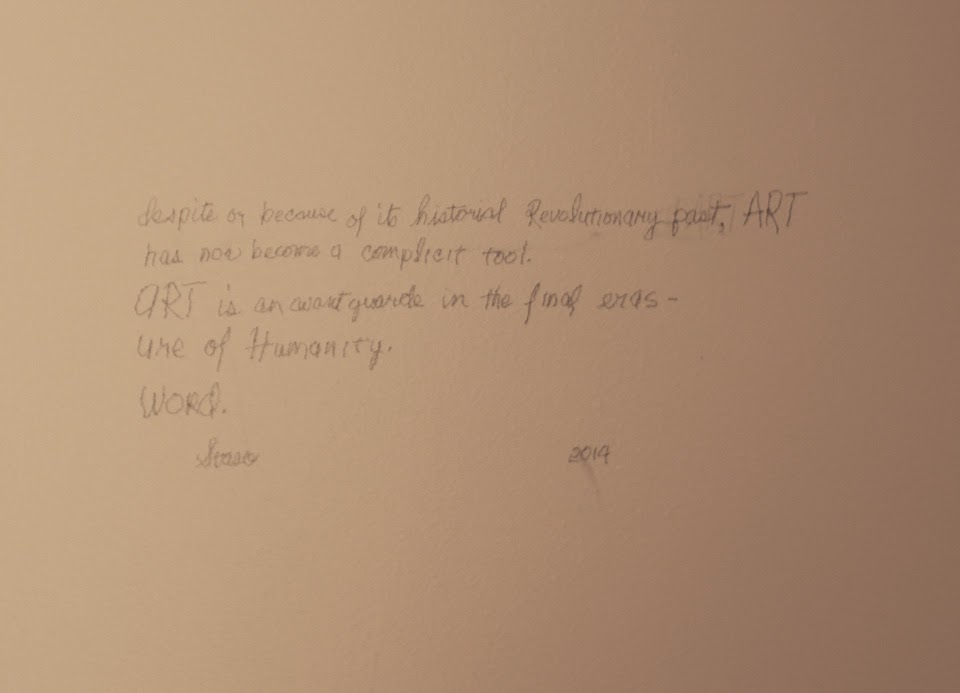 despite or because of its historial Revolutionary past, ART
has now become a complicit tool.
ART is an avant guarde in the final eras-
ure of Humanity.
WORD.
2014